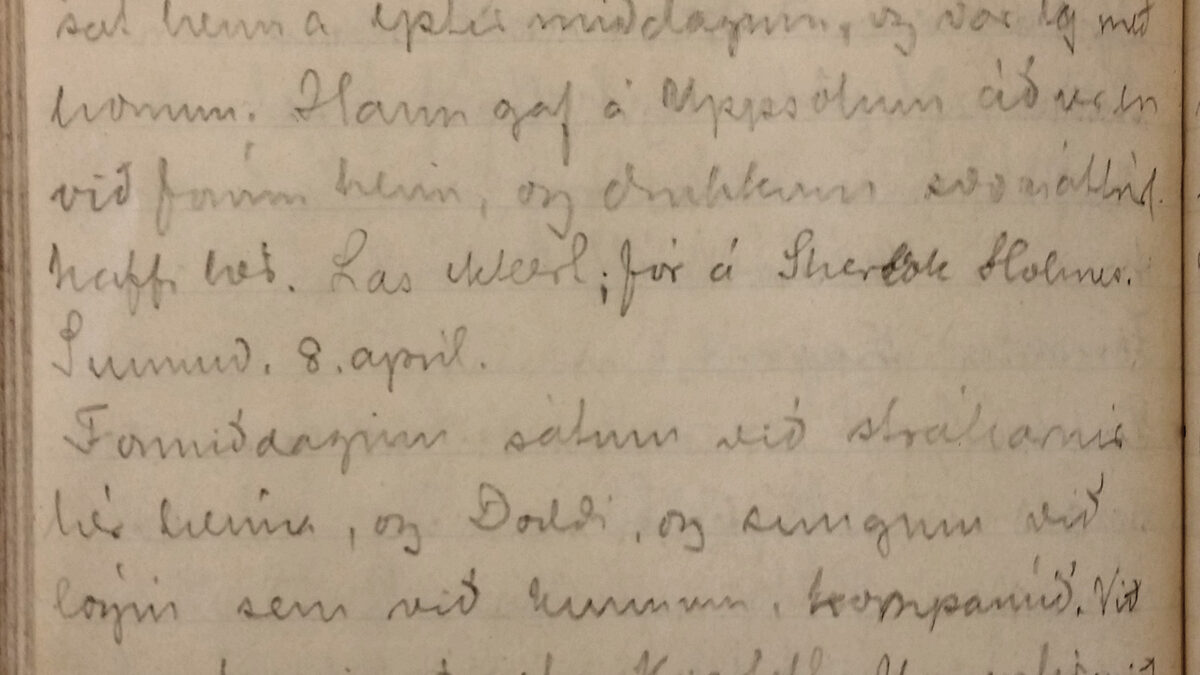 sat heima eptir middaginn, og var eg með
honum. Hann gaf á Uppsölum áður en
við fórum heim, og drukkum svo
kaffi hér. Las ekkert; fór á Sherlok Holmes.
Sunnud. 8. apríl.
Formiðdaginn sátum við strákarnir
hér heima, og Doddi, og sungum við
lögin sem við kunnum. kompaníið. Við